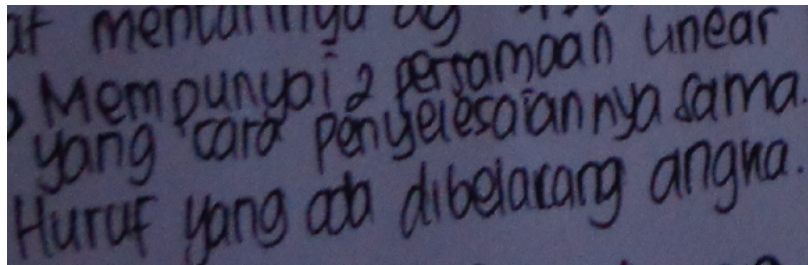 Mempunyai 2 persamaan linear
yang cara penyelesaiannya sama.
Huruf yang ada dibelakang angka.